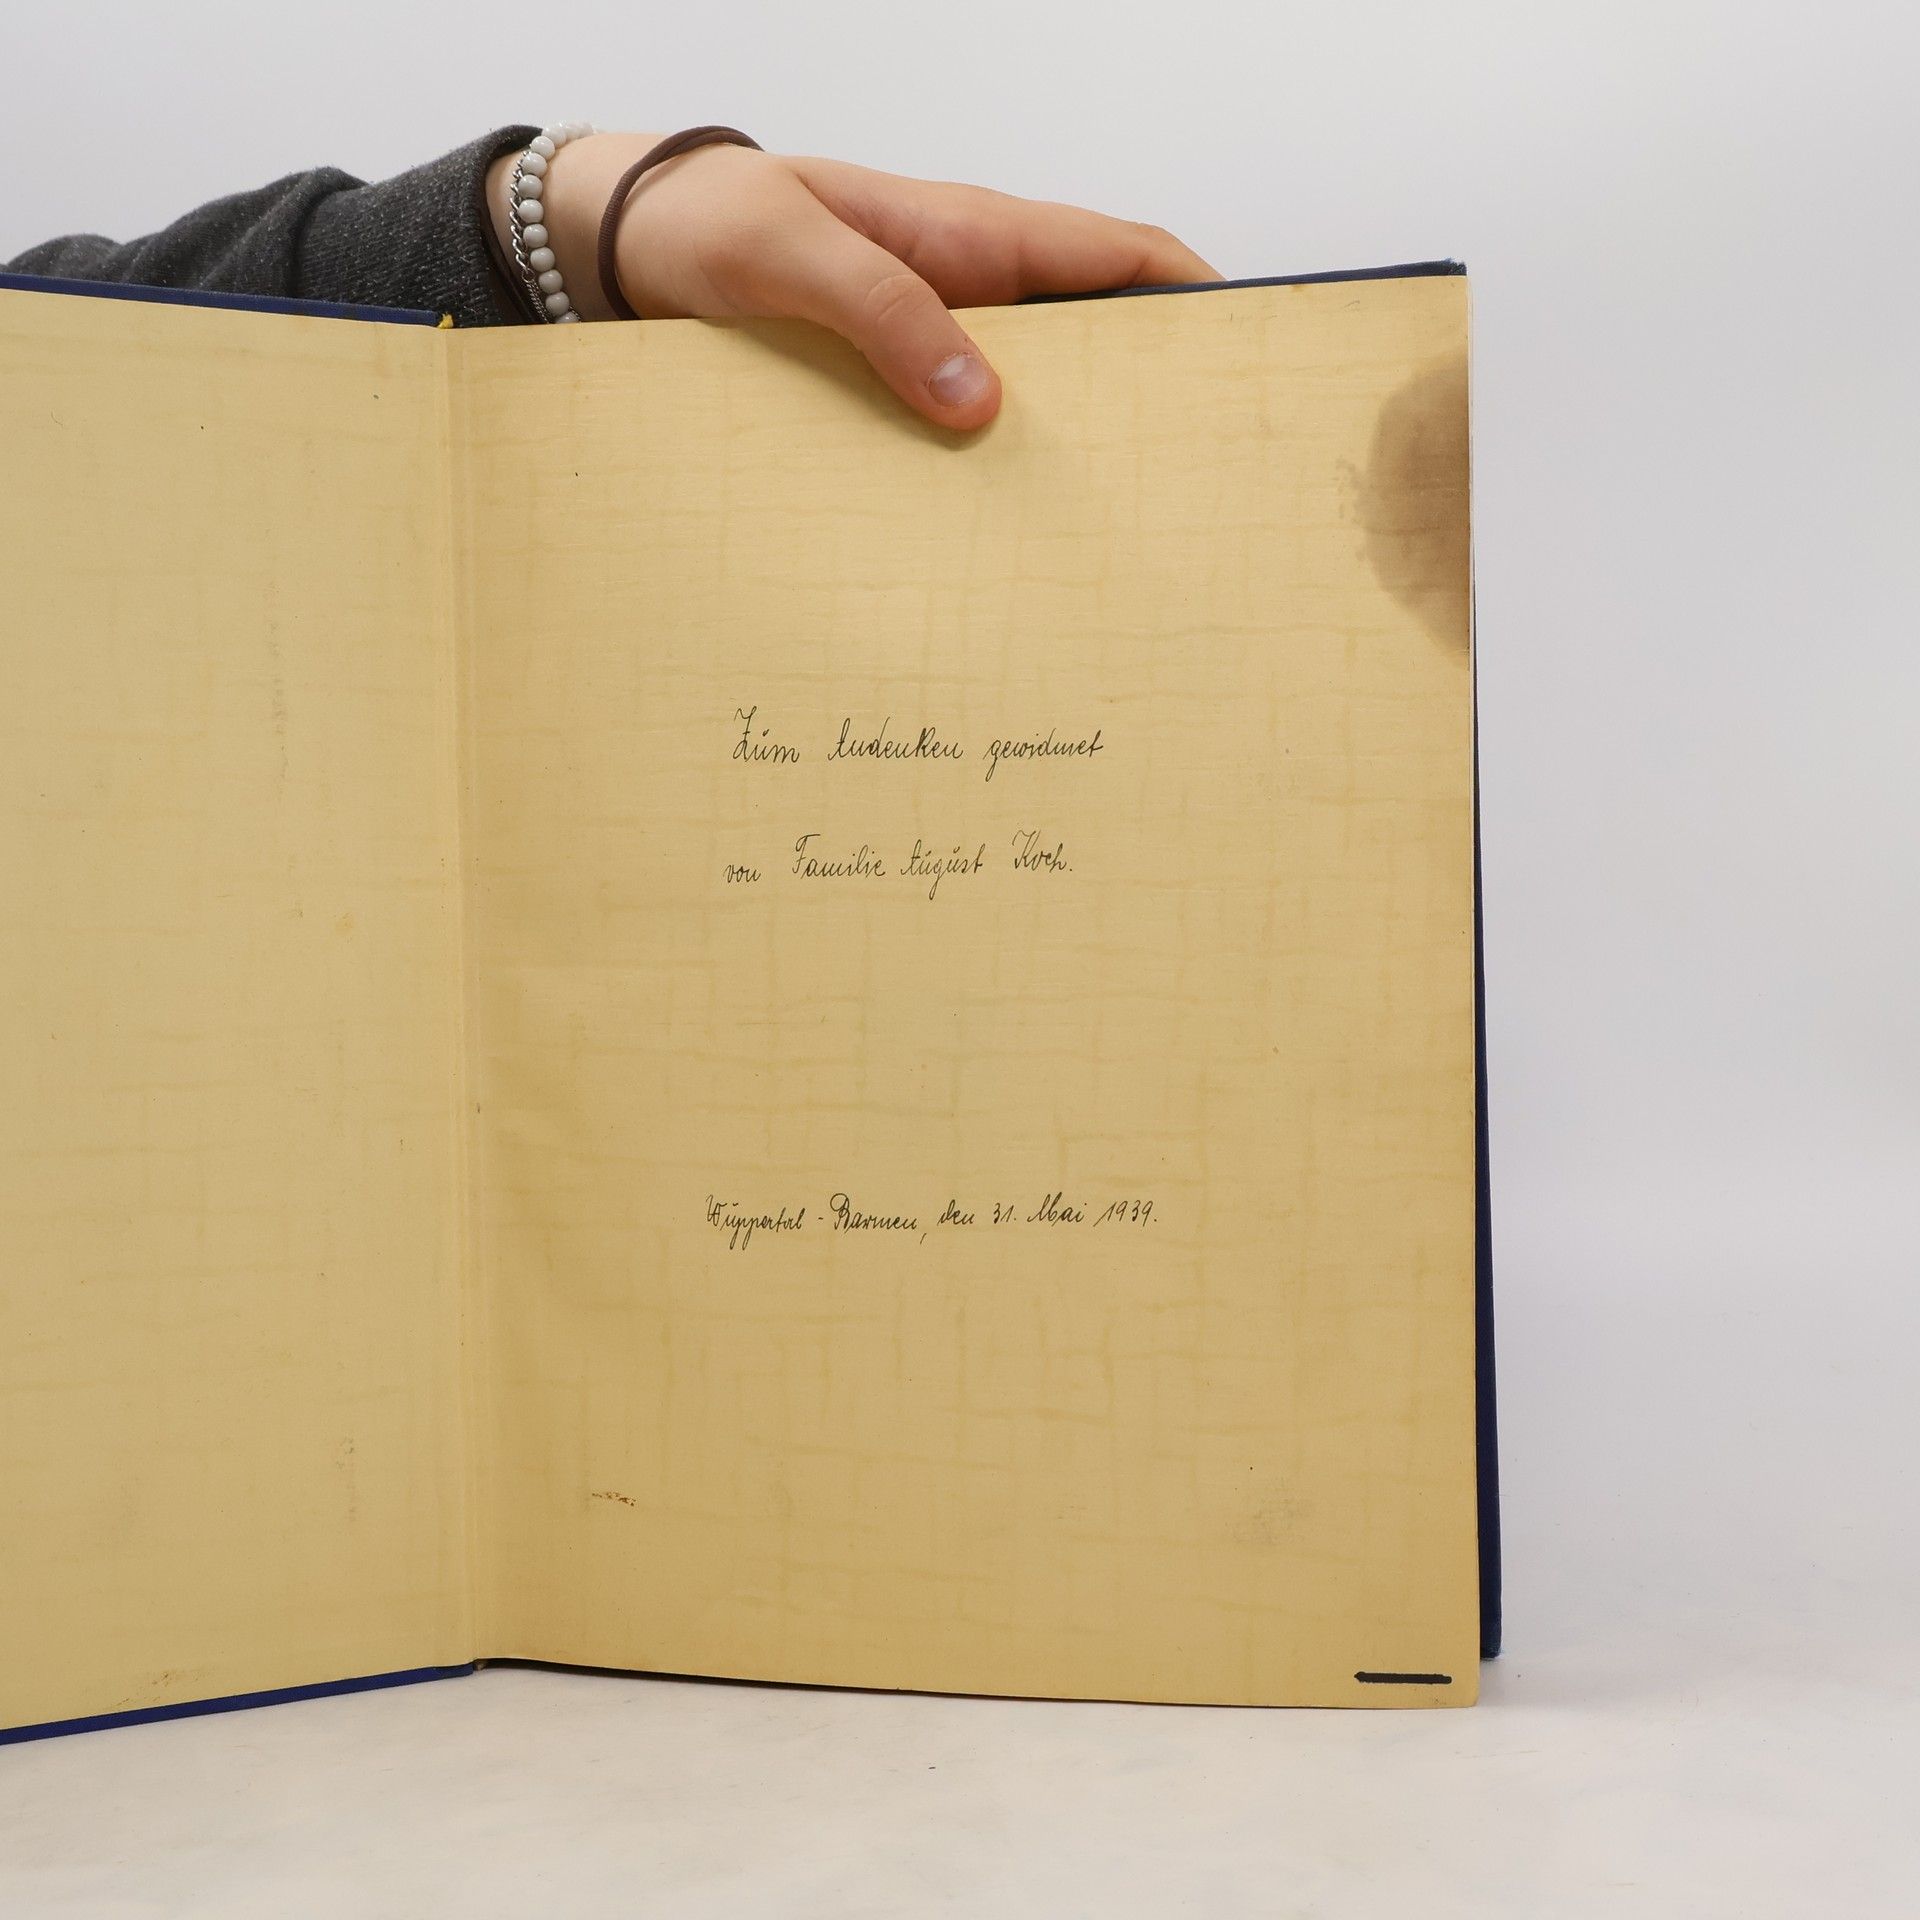 Zum Andenken gewidmet
von Familie August Koch.
Wuppertal - Barmen, den 31. Mai 1939.